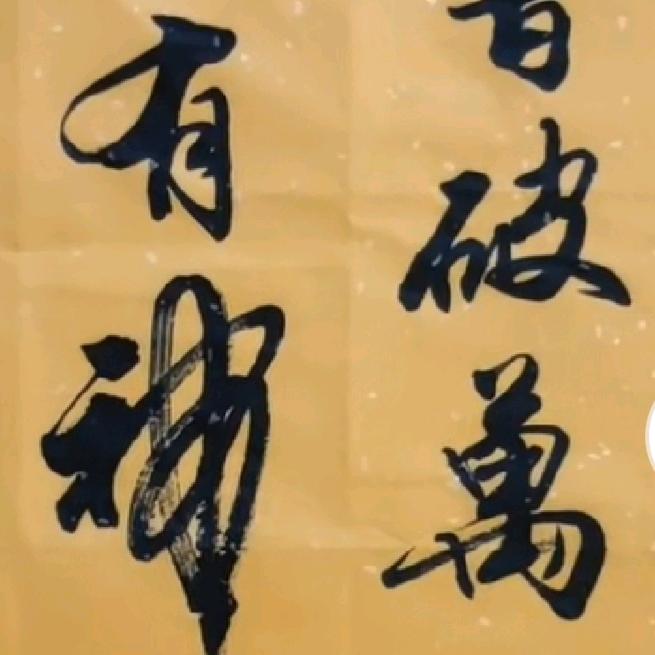 書破萬
有神